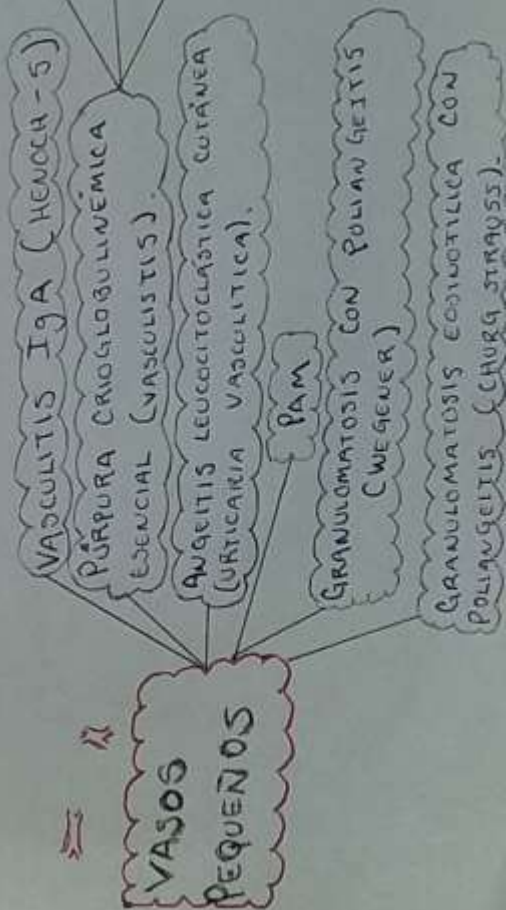 VASOS
PEQUEÑOS
VASCULITIS IgA (HENOCH-S)
PÚRPURA CRIOGLOBULINÉMICA
ESENCIAL (VASCULISTIS).
ANGEITIS LEUCOCITOCLÁSTICA CUTÁNEA
(URTICARIA VASCULITICA).
PAM
GRANULOMATOSIS CON POLIANGEITIS
(WEGENER)
GRANULOMATOSIS EOSINOFILICA CON
POLIANGEITIS (CHURG STRAUSS).